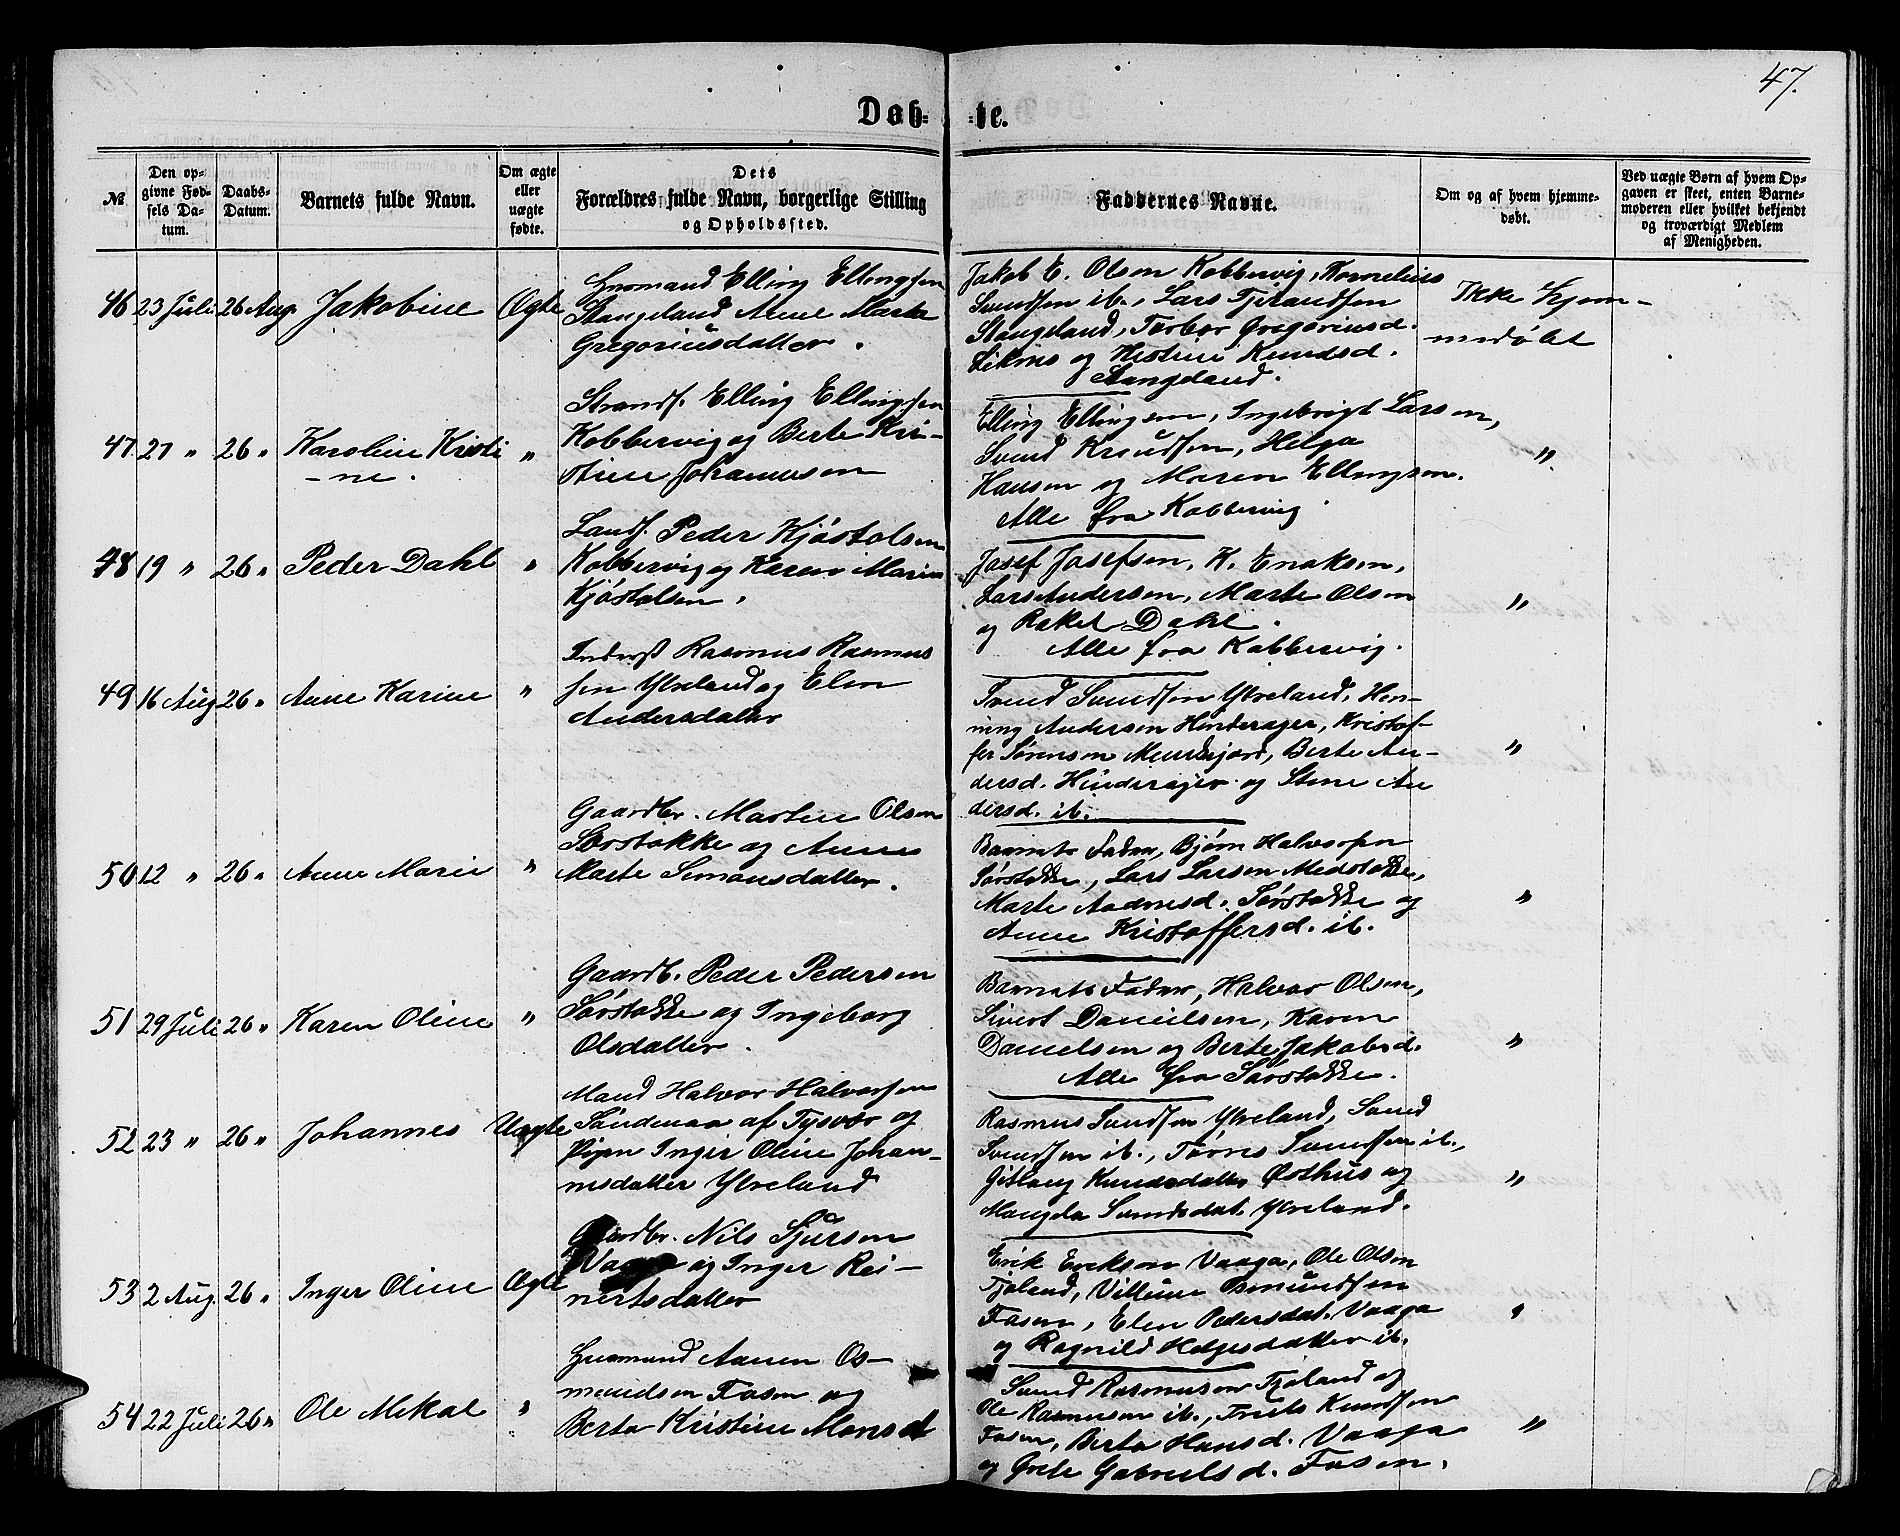 47.
Døb-te.
№
Den op-
givne Fød-
sels Da-
tum.
Daabs-
Datum.
Barnets fulde Navn.
Om ægte
eller
uægte
fødte.
Dets
Forældres fulde Navn, borgerlige Stilling
og Opholdssted.
Faddernes Navne.
Om og af hvem hjemme-
døbt.
Ved uægte Børn af hvem Op-
gaven er skeet, enten Barne-
moderen eller hvilket bekjendt
og troværdigt Medlem
af Menigheden.
46 23 Juli 26 Aug. Jakobine Ægte
Husmand Elling Ellingsen
Stangeland Anne Marta
Gregoriusdatter.
Jakob E. Olsen Kobbervig, Kornelius
Svendsen ib., Lars Tjerandsen
Stangeland, Torbor Gregoriusd.
og Knudsd.
Stangeland.
Ikke hjem-
medøbt
47 27 " 26 " Karoline Kristi
-ne.
"
Strands. Elling Ellingsen
Kobbervig og Berte Kri-
stine Johannesen
Elling Ellingsen, Ingebrigt Larsen,
Svend Knudsen, Helga
Hansen og Maren Ellingsen.
Alle fra Kobbervig
"
48 19 " 26 " Peder Dahl "
Lands. Peder Kjøstolsen
Kobbervig og Karen Marie
Kjøstolsen.
Josef Josefsen, K. Enoksen,
Lars Andersen, Marte Olsen
og Rakel Dahl.
Alle fra Kobbervig.
"
49 16 Aug 26 " Anne Karine "
Inderst Rasmus Rasmus
sen Yrkeland og Elen
Andersdatter
Svend Svendsen Yrkeland, Hen-
ning Andersen Hinderager, Kristof-
fer Sørensen, Berte An-
dersd. Hinderager og Stine An
dersd. ib.
"
50 12 " 26 " Anne Marie "
Gaardbr. Martin Olsen
Sørstokke og Anne
Marte Simonsdatter.
Barnets Fader, Bjørn Halvorsen
Sørstokke, Lars Larsen Medstokke,
Marte Aadnesd. Sørstokke og
Anne Kristoffersd. ib.
"
51 29 Juli 26 " Karen Oline "
Gaardb. Peder Pedersen
Sørstokke og Ingeborg
Olsdatter.
Barnets Fader, Halvor Olsen,
Sivert Danielsen, Karen
Danielsen og Berte Jakobsd.
Alle fra Sørstokke.
"
52 23 " 26 " Johannes Uægte
Mand Halvor Halvorsen
Søndenaa af Tysvær og
Pigen Inger Oline Johan-
nesdatter Yrkeland
Rasmus Svendsen Yrkeland, Svend
Svendsen ib., Tørres Svendsen ib.,
Gitlaug Knudsdatter Østhus og
Mangela Svendsdat. Yrkeland.
"
53 2 Aug. 26 " Inger Oline Ægte
Gaardbr. Nils Sjursen
Vaaga og Inger Rei-
nertsdatter
Erik Eriksen Vaaga, Ole Olsen
Tjoland, Villum Osmundsen
Fosen, Elen Pedersdat. Vaaga
og Ragnild Helgesdatter ib.
"
54 22 Juli 26 " Ole Mikal "
Husmand Aanen Os-
mundsen Fosen og
Berta Kristine Monsd
Svend Rasmusen Tjoland og
Ole Rasmusen ib., Knudsen
Fosen, Berta Hansd. Vaaga
og Grete Gabrielsd. Fosen.
"